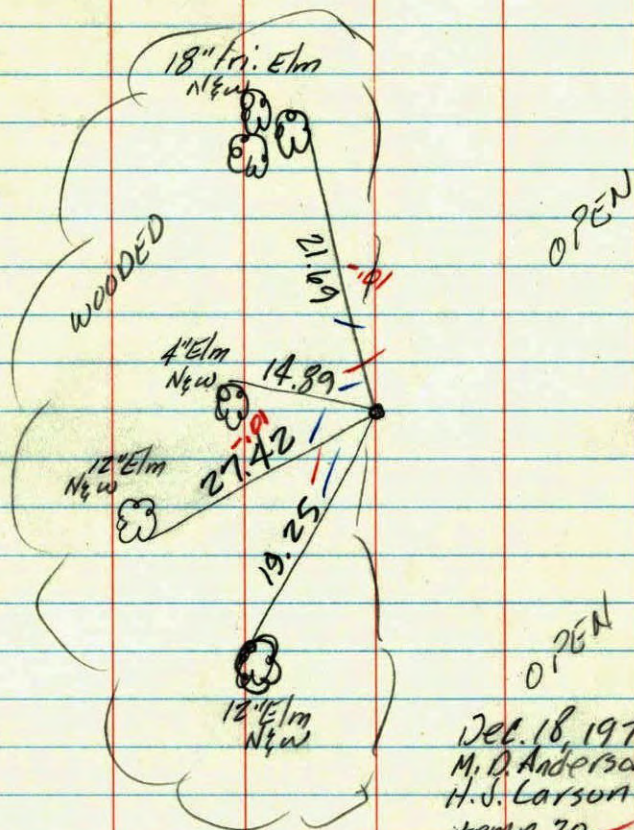 18" tri. Elm
N & W
OPEN
WOODED
21.69
-.01
4" Elm
N & W
14.89
-.01
12" Elm
N & W
27.42
19.25
OPEN
12" Elm
N & W
Dec. 18, 197
M. D. Anderso
H. J. Larson